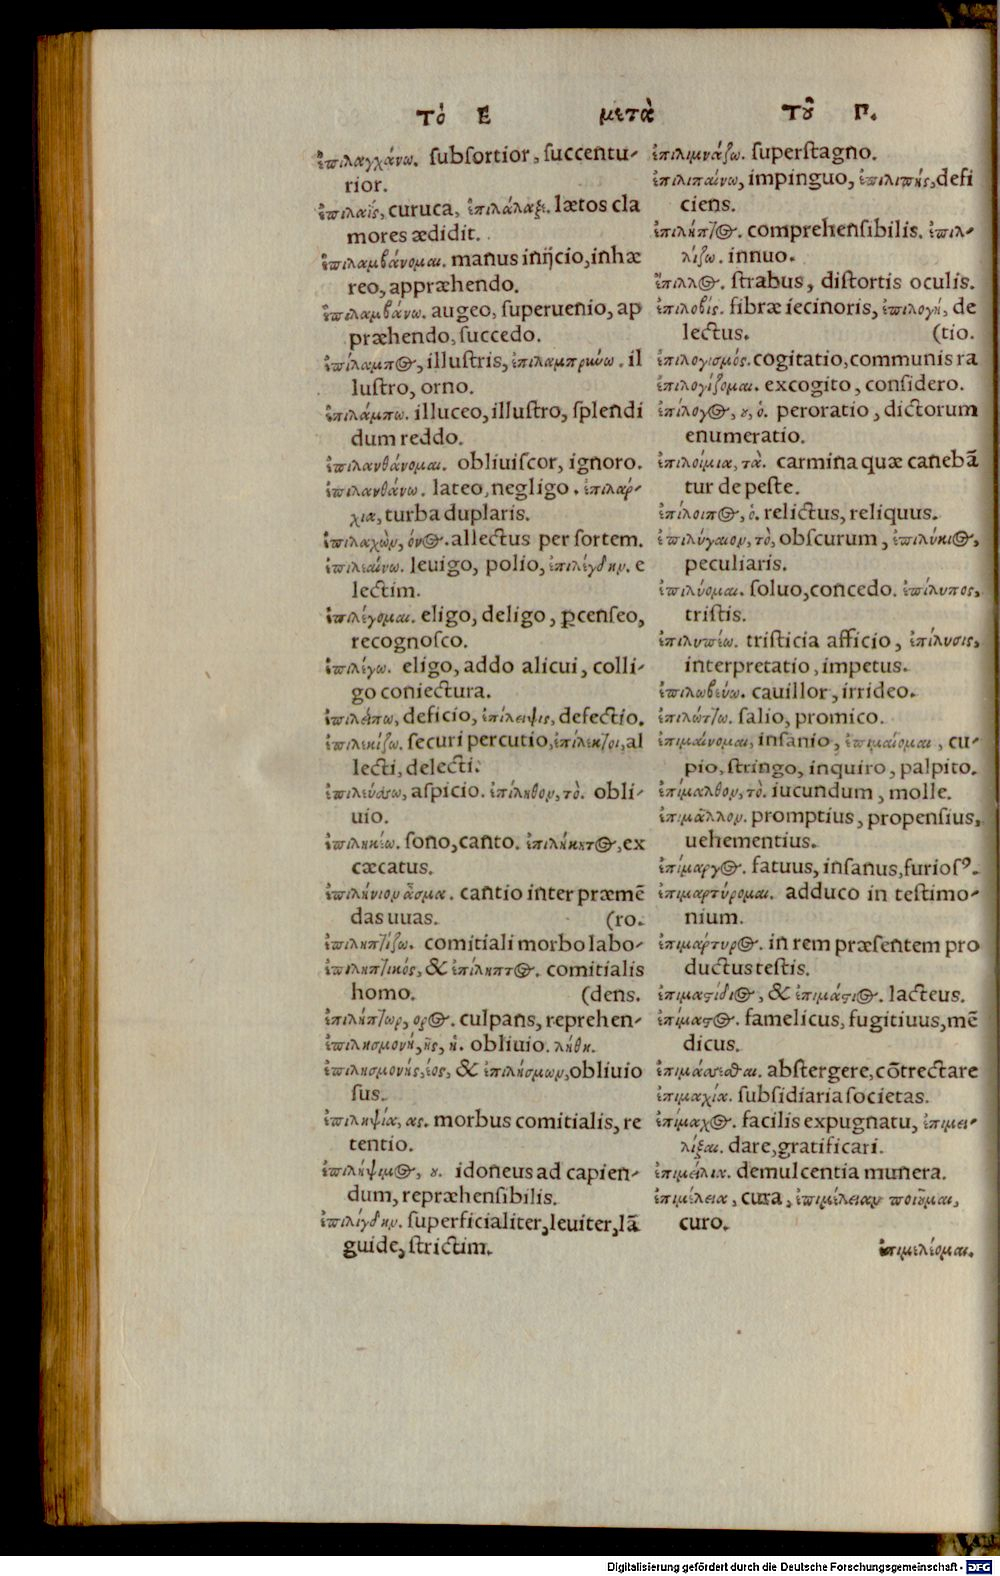 Τὸ Ε μετὰ Τοῦ Π.
ἐπιλαγχάνω. subsortior, succentu-
rior.
ἐπιλαΐς, curuca, ἐπιλάλαξε. lætos cla
mores ædidit.
ἐπιλαμβάνομαι. manus inijcio, inhæ
reo, appræhendo.
ἐπιλαμβάνω. augeo, superuenio, ap
præhendo, succedo.
ἐπίλαμπος, illustris, ἐπιλαμπρύνω. il
lustro, orno.
ἐπιλάμπω. illuceo, illustro, splendi
dum reddo.
ἐπιλανθάνομαι. obliuiscor, ignoro.
ἐπιλανθάνω. lateo, negligo. ἐπιλαρ-
χία, turba duplaris.
ἐπιλαχὼν, όντος. allectus per sortem.
ἐπιλεαίνω. leuigo, polio, ἐπιλέγδην. e
lectim.
ἐπιλέγομαι. eligo, deligo, ꝑcenseo,
recognosco.
ἐπιλέγω. eligo, addo alicui, colli-
go coniectura.
ἐπιλείπω, deficio, ἐπίλειψις, defectio.
ἐπιλεκίζω. securi percutio, ἐπίλεκτοι, al
lecti, delecti.
ἐπιλεύσσω, aspicio. ἐπίληθον, τὸ. obli-
uio.
ἐπιληκέω. sono, canto. ἐπιλήκητος, ex
cæcatus.
ἐπιλήνιον ᾆσμα. cantio inter præmē
das uuas. (ro.
ἐπιληπτίζω. comitiali morbo labo-
ἐπιληπτικός, & ἐπίληπτος. comitialis
homo. (dens.
ἐπιλήπτωρ, ορος. culpans, reprehen-
ἐπιλησμονή, ῆς, ἡ. obliuio. λήθη.
ἐπιλησμονής, έος, & ἐπιλήσμων, obliuio
sus.
ἐπιληψία, ας. morbus comitialis, re
tentio.
ἐπιλήψιμος, ου. idoneus ad capien-
dum, repræhensibilis.
ἐπιλίγδην. superficialiter, leuiter, lā
guide, strictim.
ἐπιλιμνάζω. superstagno.
ἐπιλιπαίνω, impinguo, ἐπιλιπής, defi
ciens.
ἐπίληπτος. comprehensibilis. ἐπιλ-
λίζω. innuo.
ἔπιλλος. strabus, distortis oculis.
ἐπιλοβίς. fibræ iecinoris, ἐπιλογή, de
lectus. (tio.
ἐπιλογισμός. cogitatio, communis ra
ἐπιλογίζομαι. excogito, considero.
ἐπίλογος, ου, ὁ. peroratio, dictorum
enumeratio.
ἐπιλοίμια, τὰ. carmina quæ canebā
tur de peste.
ἐπίλοιπος, ὁ. relictus, reliquus.
ἐπιλύγαιον, τὸ, obscurum, ἐπιλύκιος,
peculiaris.
ἐπιλύομαι. soluo, concedo. ἐπίλυπος,
tristis.
ἐπιλυπέω. tristicia afficio, ἐπίλυσις,
interpretatio, impetus.
ἐπιλωβεύω. cauillor, irrideo.
ἐπιλώτζω. salio, promico.
ἐπιμαίνομαι, insanio, ἐπιμαίομαι, cu-
pio, stringo, inquiro, palpito.
ἐπίμαλθον, τὸ. iucundum, molle.
ἐπιμᾶλλον. promptius, propensius,
uehementius.
ἐπίμαργος. fatuus, insanus, furiosꝰ.
ἐπιμαρτύρομαι. adduco in testimo-
nium.
ἐπιμάρτυρος. in rem præsentem pro
ductus testis.
ἐπιμαστίδιος, & ἐπιμάστιος. lacteus.
ἐπίμαστος. famelicus, fugitiuus, mē
dicus.
ἐπιμάσσεσθαι. abstergere, cōtrectare
ἐπιμαχία. subsidiaria societas.
ἐπίμαχος. facilis expugnatu, ἐπιμει-
λίξαι. dare, gratificari.
ἐπιμείλια. demulcentia munera.
ἐπιμέλεια, cura, ἐπιμέλειαν ποιοῦμαι,
curo.
ἐπιμελέομαι.
Digitalisierung gefördert durch die Deutsche Forschungsgemeinschaft - DFG